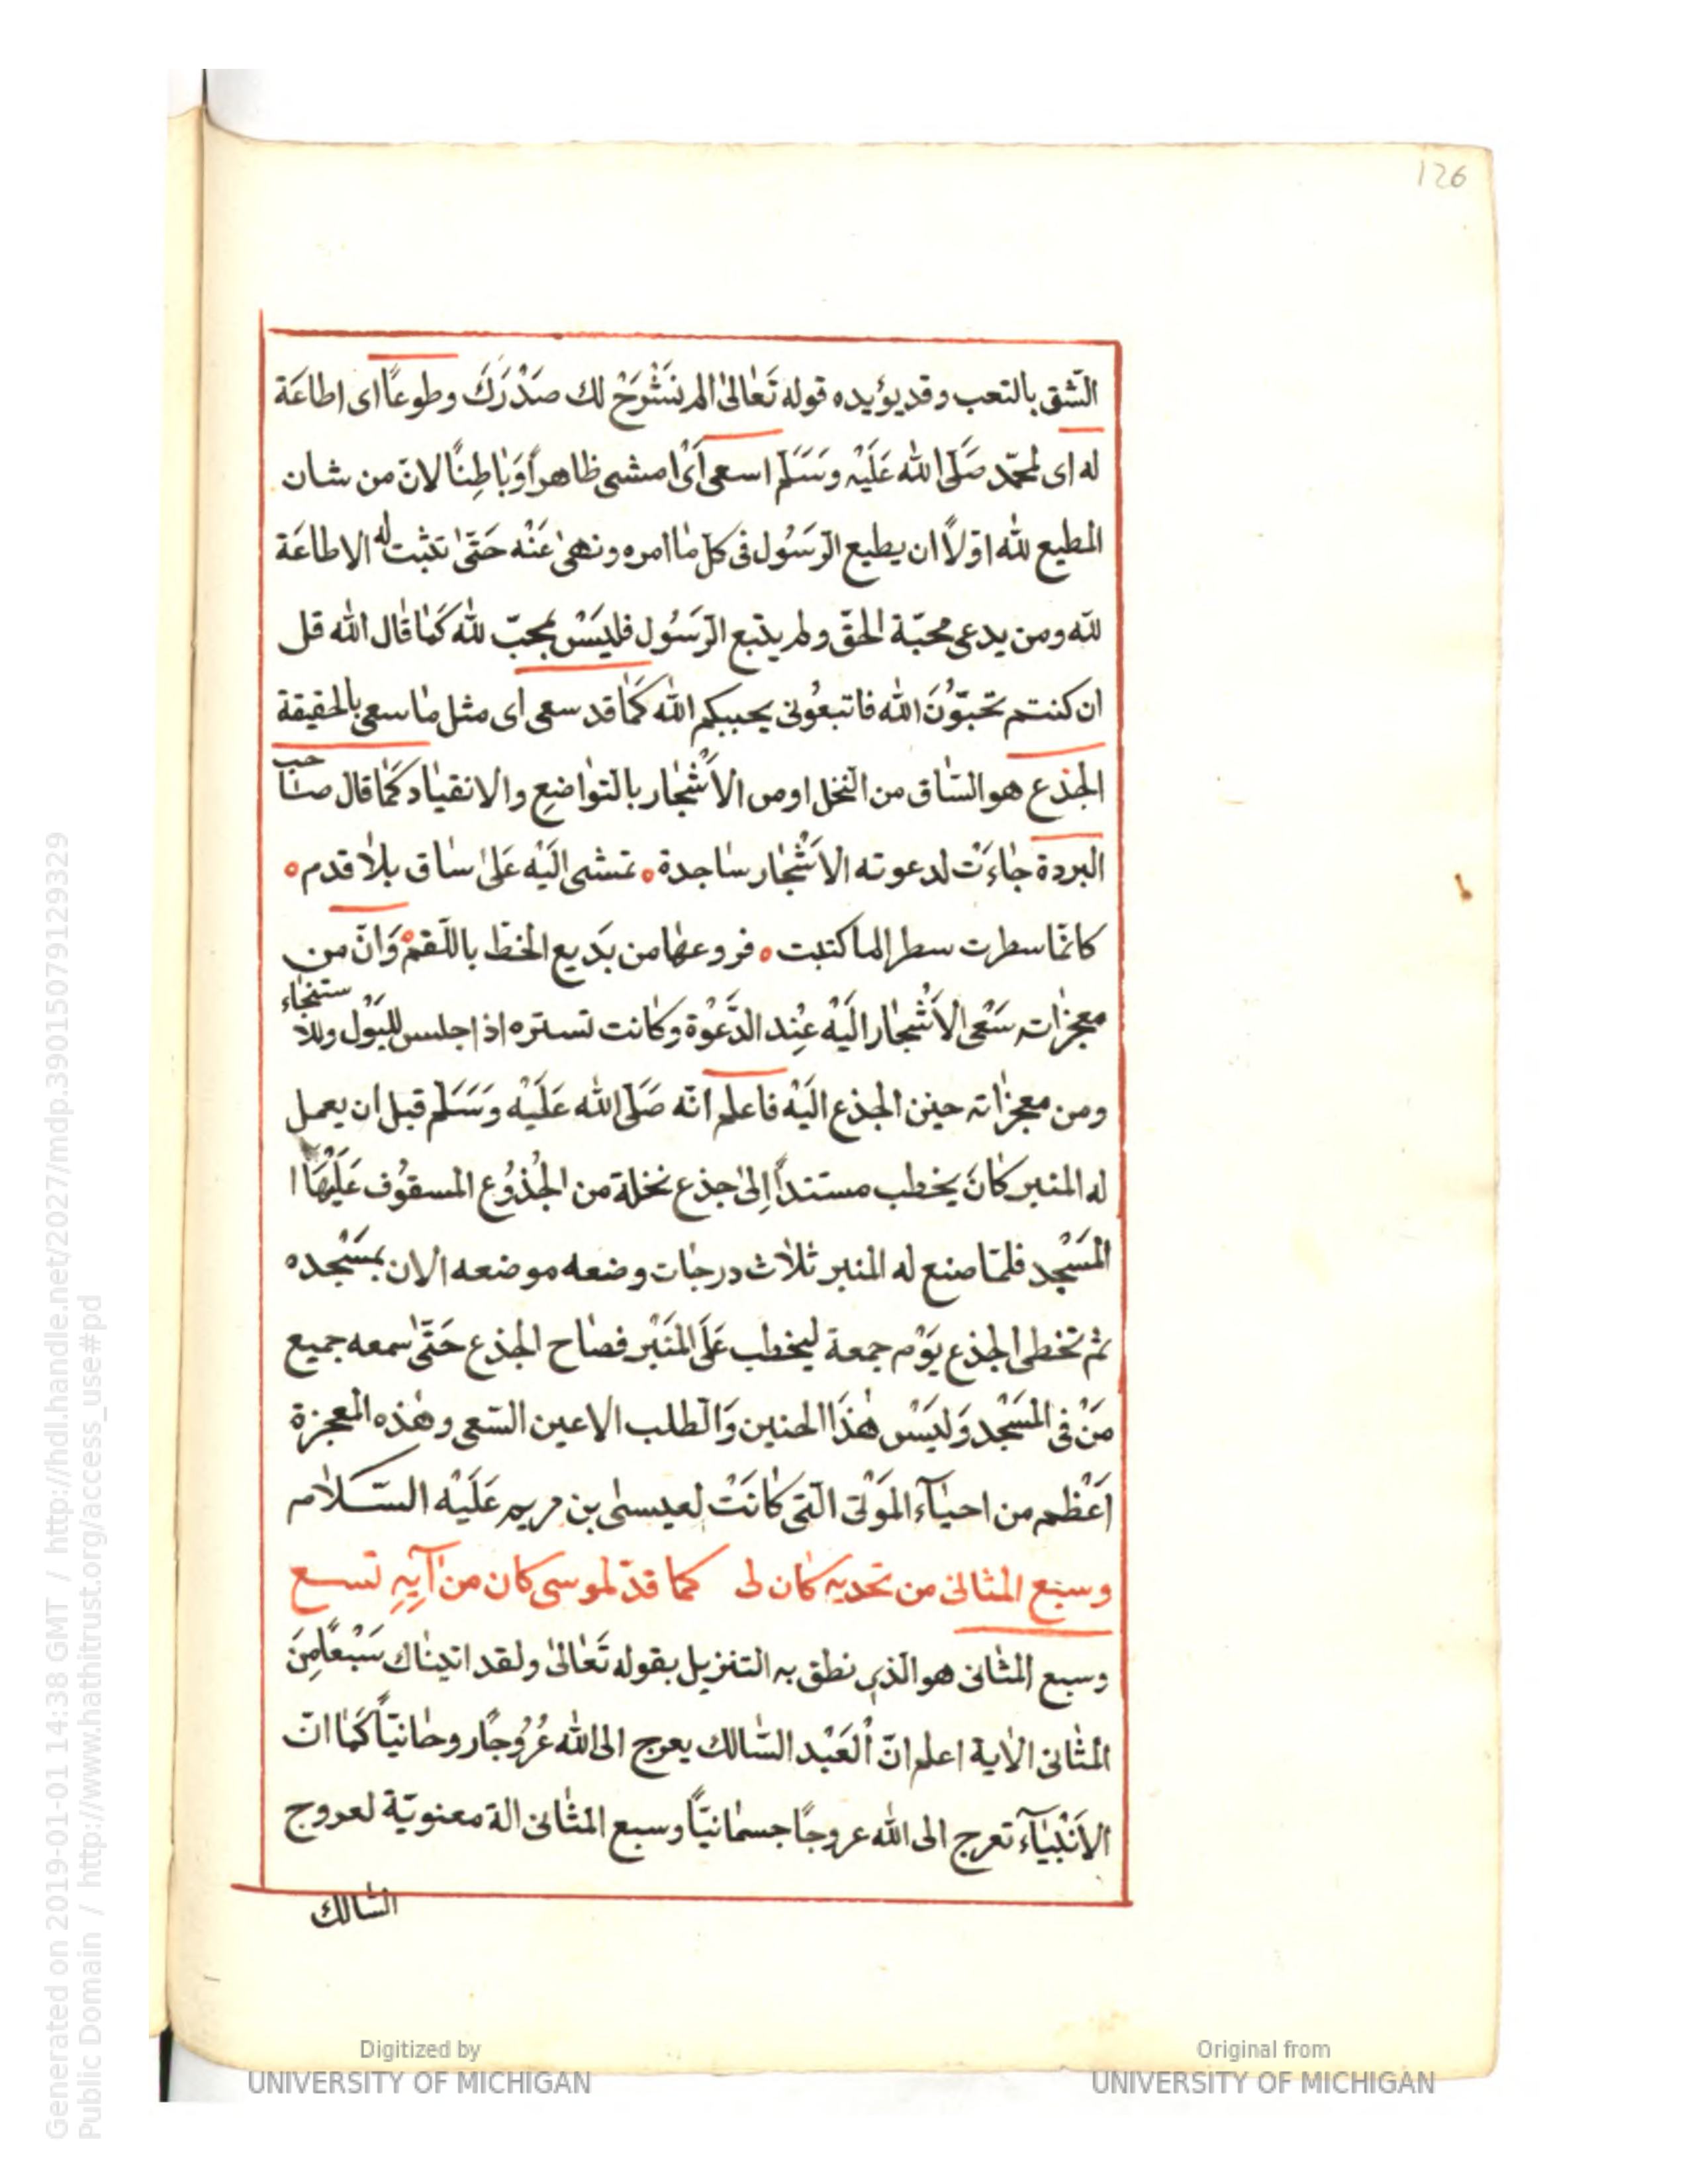 126
الشّق بالتعب وقد يؤيده قوله تَعٰالىٰ الم نَشْرَحْ لك صَدْرَكَ وطوعًا اى اطاعَة
له اى لمحمّد صَلّى اللّه عَلَيْه وَسَلَم اسعى اَىْ امشى ظاهراً وَبٰاطِنًا لانّ من شان
المطيع للّه اوّلاً ان يطيع الرّسُول فى كلّ مٰا امره ونهىٰ عَنْه حَتّىٰ تثبت له الاطاعَة
للّه ومن يدعى محبّة الحقّ ولم يتبع الرّسُول فليَسْ بمحبّ للّه كَمٰا قٰال اللّه قل
ان كنتم تحبّوُنَ اللّه فاتبعُونى يحببكم اللّه كَمٰا قد سعى اى مثل مٰا سعى بالحقيقة
الجذع هو السّٰاق من النّخل او من الاَشْجٰار بالتّوٰاضعِ والانقيٰاد كَمٰا قال صٰاحب
البردة جٰاءَتْ لدعوته الاَشْجٰار سٰاجدة ٥ تمشى اليَْه عَلىٰ سٰاق بلاٰ قدم ٥
كانمّا سطرت سطرا لما كتبت ٥ فروعهٰا من بَديع الخطّ باللّقم ٥ وَانّ من
معجزٰاته سَعْى الاَشْجٰار اليَْه عِنْد الدَّعْوَة وكٰانت تستره اذا جلس للبَوْل وللاستنجٰاء
ومن معجزٰاته حنين الجذع اليَْه فاعلم انّه صَلّى اللّه عَلَيْه وَسَلَم قبل ان يعمل
له المنبر كٰانَ يخطب مستنداً اِلىٰ جذع نخلة من الجُذوُع المسقوُف عَلَيْهَا ا
المَسْجد فلمّا صنع له المنبر ثلاٰث درجٰات وضعه موضعه الان بمَسْجده
ثم تخطى الجذع يَوْم جمعة ليخطب عَلَى المَنْبر فصٰاح الجذع حَتّىٰ سمعه جميع
مَنْ فى المَسْجد وَليَسْ هٰذَا الحنين وَالطّلب الا عين السّعى وهٰذه المعجزة
اَعْظم من احيٰآء المَوْتى الّتى كٰانَتْ لعيسىٰ بن مريم عَلَيْه السّلاٰم
وسبع المثانى من تحديه كٰان لى كما قدّ لموسى كان من آيِهِ تسع
وسبع المثانى هو الذى نطق به التنزيل بقوله تَعٰالىٰ ولقد اتينٰاك سَبْعًا مِنَ
المثٰانى الاٰية اعلم انّ اْلعَبْد السّٰالك يعرج الى اللّه عُرُوجًا روحٰانيّاً كَمٰا انّ
الاَنْبيٰآء تعرج الى اللّه عروجًا جسمٰانيّاً وسبع المثٰانى الة معنويّة لعروج
السّٰالك
Generated on 2019-01-01 14:38 GMT / http://hdl.handle.net/2027/mdp.39015079129329
Public Domain / http://www.hathitrust.org/access_use#pd
Digitized by
UNIVERSITY OF MICHIGAN
Original from
UNIVERSITY OF MICHIGAN